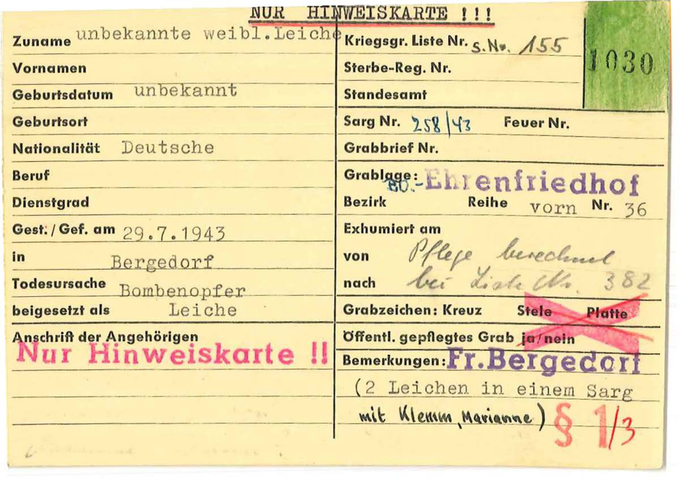 NUR HINWEISKARTE !!!
Zuname unbekannte weibl.Leiche
Vornamen
Geburtsdatum unbekannt
Geburtsort
Nationalität Deutsche
Beruf
Dienstgrad
Gest./Gef. am 29.7.1943
in Bergedorf
Todesursache Bombenopfer
beigesetzt als Leiche
Anschrift der Angehörigen
Nur Hinweiskarte !!
Kriegsgr. Liste Nr. S.Nr. 155
1030
Sterbe-Reg. Nr.
Standesamt
Sarg Nr. 258/43 Feuer Nr.
Grabbrief Nr.
Grablage: BG.-Ehrenfriedhof
Bezirk Reihe vorn Nr. 36
Exhumiert am
von Pflege berechnet
nach bei Liste Nr. 382
Grabzeichen: Kreuz Stele Platte
Öffentl. gepflegtes Grab ja/nein
Bemerkungen: Fr.Bergedorf
(2 Leichen in einem Sarg
mit Klemm, Marianne)
§ 1/3